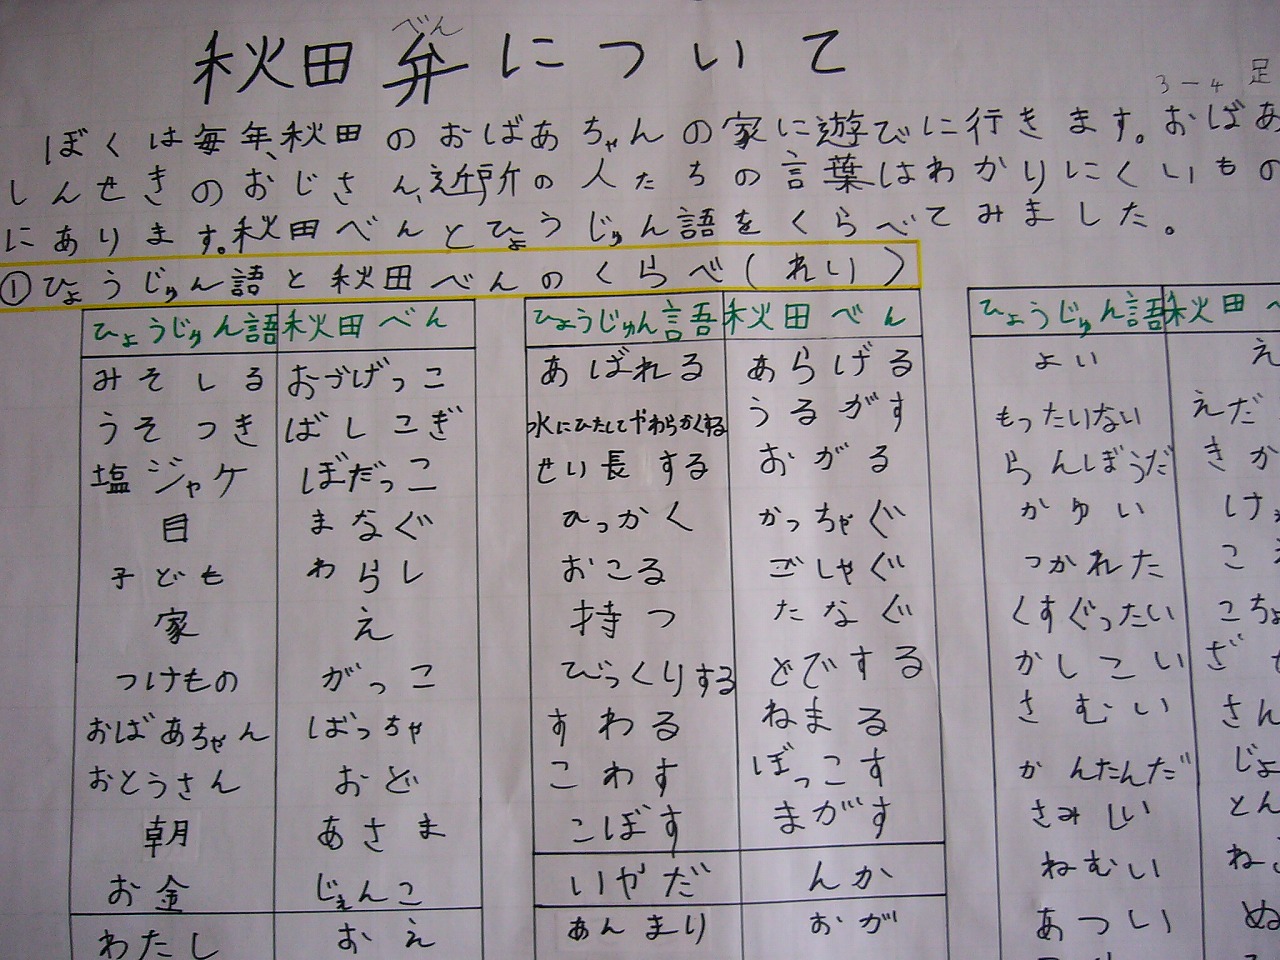 秋田弁について
べん
3-4 足
ぼくは毎年、秋田のおばあちゃんの家に遊びに行きます。おばあ
しんせきのおじさん、近所の人たちの言葉はわかりにくいもの
にあります。秋田べんとひょうじゅん語をくらべてみました。
①ひょうじゅん語と秋田べんのくらべ(れい)
ひょうじゅん語 秋田べん
みそしる おづげっこ
うそつき ばしこぎ
塩ジャケ ぼだっこ
目 まなぐ
子ども わらし
家 え
つけもの がっこ
おばあちゃん ばっちゃ
おとうさん おど
朝 あさま
お金 じぇんこ
わたし おえ
ひょうじゅん語 秋田べん
あばれる あらげる
水にひたしてやわらかくする うるがす
せい長する おがる
ひっかく かっちゃぐ
おこる ごしゃぐ
持つ たなぐ
びっくりする どでする
すわる ねまる
こわす ぼっこす
こぼす まがす
いやだ んか
あんまり おが
ひょうじゅん語 秋田べ
よい え
もったいない えだ
らんぼうだ きか
かゆい け
つかれた こ
くすぐったい こちょ
かしこい ざ
さむい さん
かんたんだ じょ
さみしい とん
ねむい ね
あつい ぬ